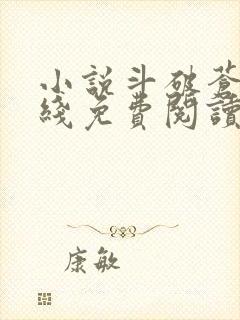 小說斗破蒼
綫免費閱讀
康敏